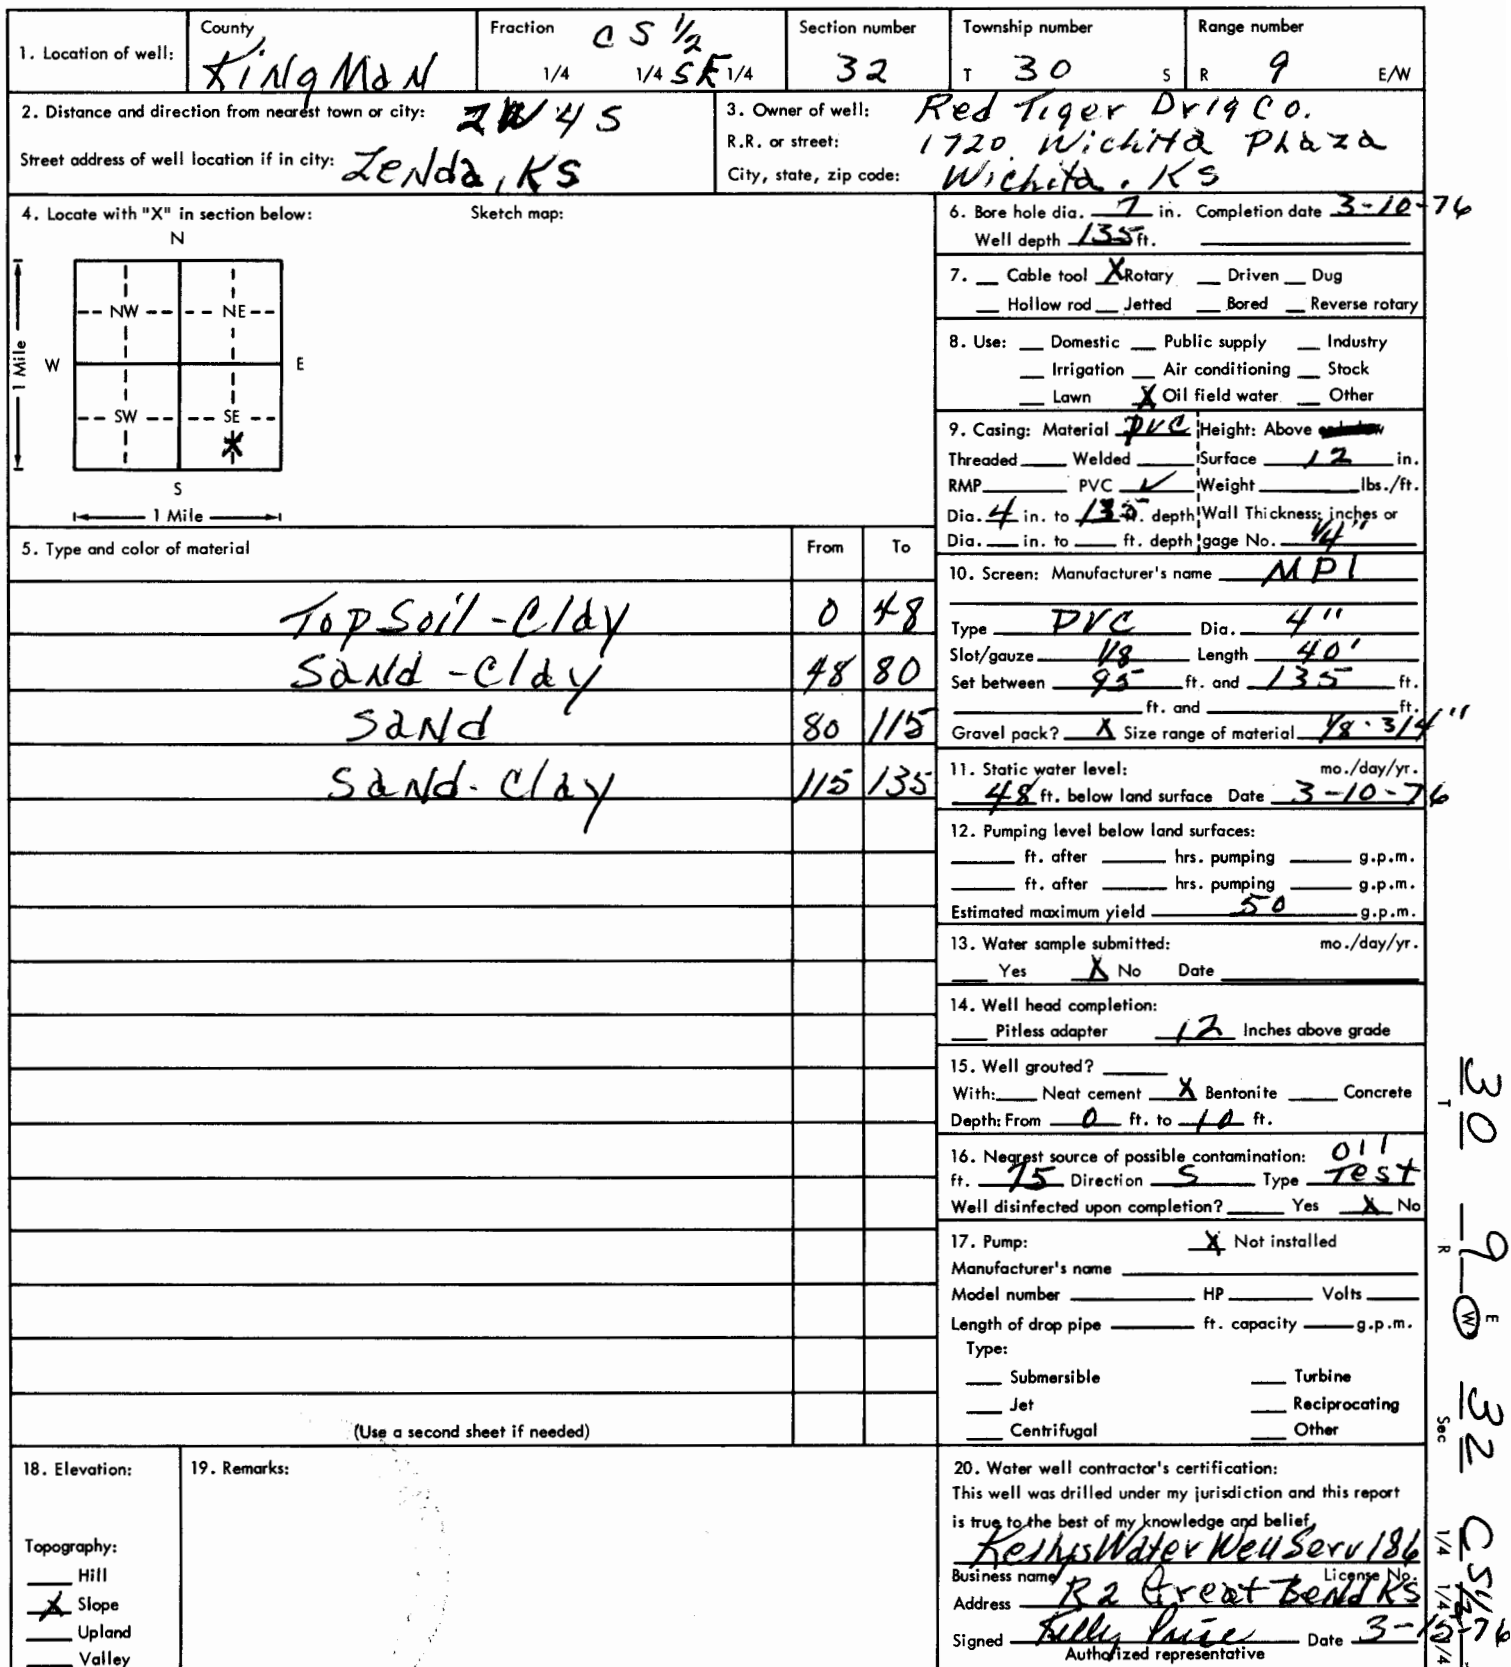 1. Location of well: County Kingman Fraction C S 1/2 1/4 1/4 SE 1/4 Section number 32 Township number T 30 S Range number R 9 E/W
2. Distance and direction from nearest town or city: 2W 4S
Street address of well location if in city: Zenda, KS
3. Owner of well: Red Tiger Drlg Co.
R.R. or street: 1720 Wichita Plaza
City, state, zip code: Wichita, KS
4. Locate with "X" in section below: Sketch map:
N
NW NE
W E
1 Mile
SW SE
X
S
1 Mile
5. Type and color of material From To
Top Soil - Clay 0 48
Sand - Clay 48 80
Sand 80 115
Sand - Clay 115 135
(Use a second sheet if needed)
6. Bore hole dia. 7 in. Completion date 3-10-76
Well depth 135 ft.
7. Cable tool X Rotary Driven Dug
Hollow rod Jetted Bored Reverse rotary
8. Use: Domestic Public supply Industry
Irrigation Air conditioning Stock
Lawn X Oil field water Other
9. Casing: Material PVC Height: Above
Threaded Welded Surface 12 in.
RMP PVC ✓ Weight lbs./ft.
Dia. 4 in. to 135 ft. depth Wall Thickness: inches or
Dia. in. to ft. depth gage No. 1/4"
10. Screen: Manufacturer's name MPI
Type PVC Dia. 4"
Slot/gauze 1/8 Length 40'
Set between 95 ft. and 135 ft.
ft. and ft.
Gravel pack? X Size range of material 1/8 - 3/4"
11. Static water level: mo./day/yr.
48 ft. below land surface Date 3-10-76
12. Pumping level below land surfaces:
ft. after hrs. pumping g.p.m.
ft. after hrs. pumping g.p.m.
Estimated maximum yield 50 g.p.m.
13. Water sample submitted: mo./day/yr.
Yes X No Date
14. Well head completion:
Pitless adapter 12 Inches above grade
15. Well grouted?
With: Neat cement X Bentonite Concrete
Depth: From 0 ft. to 10 ft.
16. Nearest source of possible contamination: oil
ft. 75 Direction S Type Test
Well disinfected upon completion? Yes X No
17. Pump: X Not installed
Manufacturer's name
Model number HP Volts
Length of drop pipe ft. capacity g.p.m.
Type:
Submersible Turbine
Jet Reciprocating
Centrifugal Other
18. Elevation:
Topography:
Hill
X Slope
Upland
Valley
19. Remarks:
20. Water well contractor's certification:
This well was drilled under my jurisdiction and this report
is true to the best of my knowledge and belief.
Water Well Serv 186
Business name License No.
Address R 2 Great Bend KS
Signed Kelly Price Date 3-15-76
Authorized representative
T 30 R 9 E W Sec 32 1/4 1/4 1/4 C S 1/2